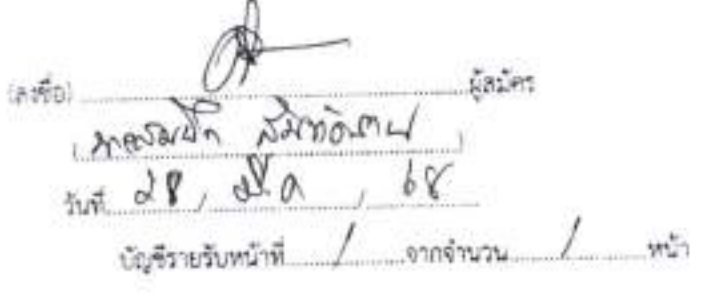 (ลงชื่อ) ผู้สมัคร
( )
วันที่ 28 / มี.ค / 68
บัญชีรายรับหน้าที่ / จากจำนวน / หน้า